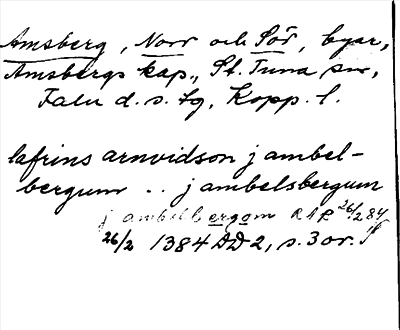 Amsberg, Norr och Sör, byar,
Amsbergs kap., St. Tuna sn,
Falu d. s. tg, Kopp. l.
lafrins arnvidson j ambel-
bergum .. j ambelsbergum
j ambelbergom RAP 26/2 84
26/2 1384 AD 2, s. 3 or.